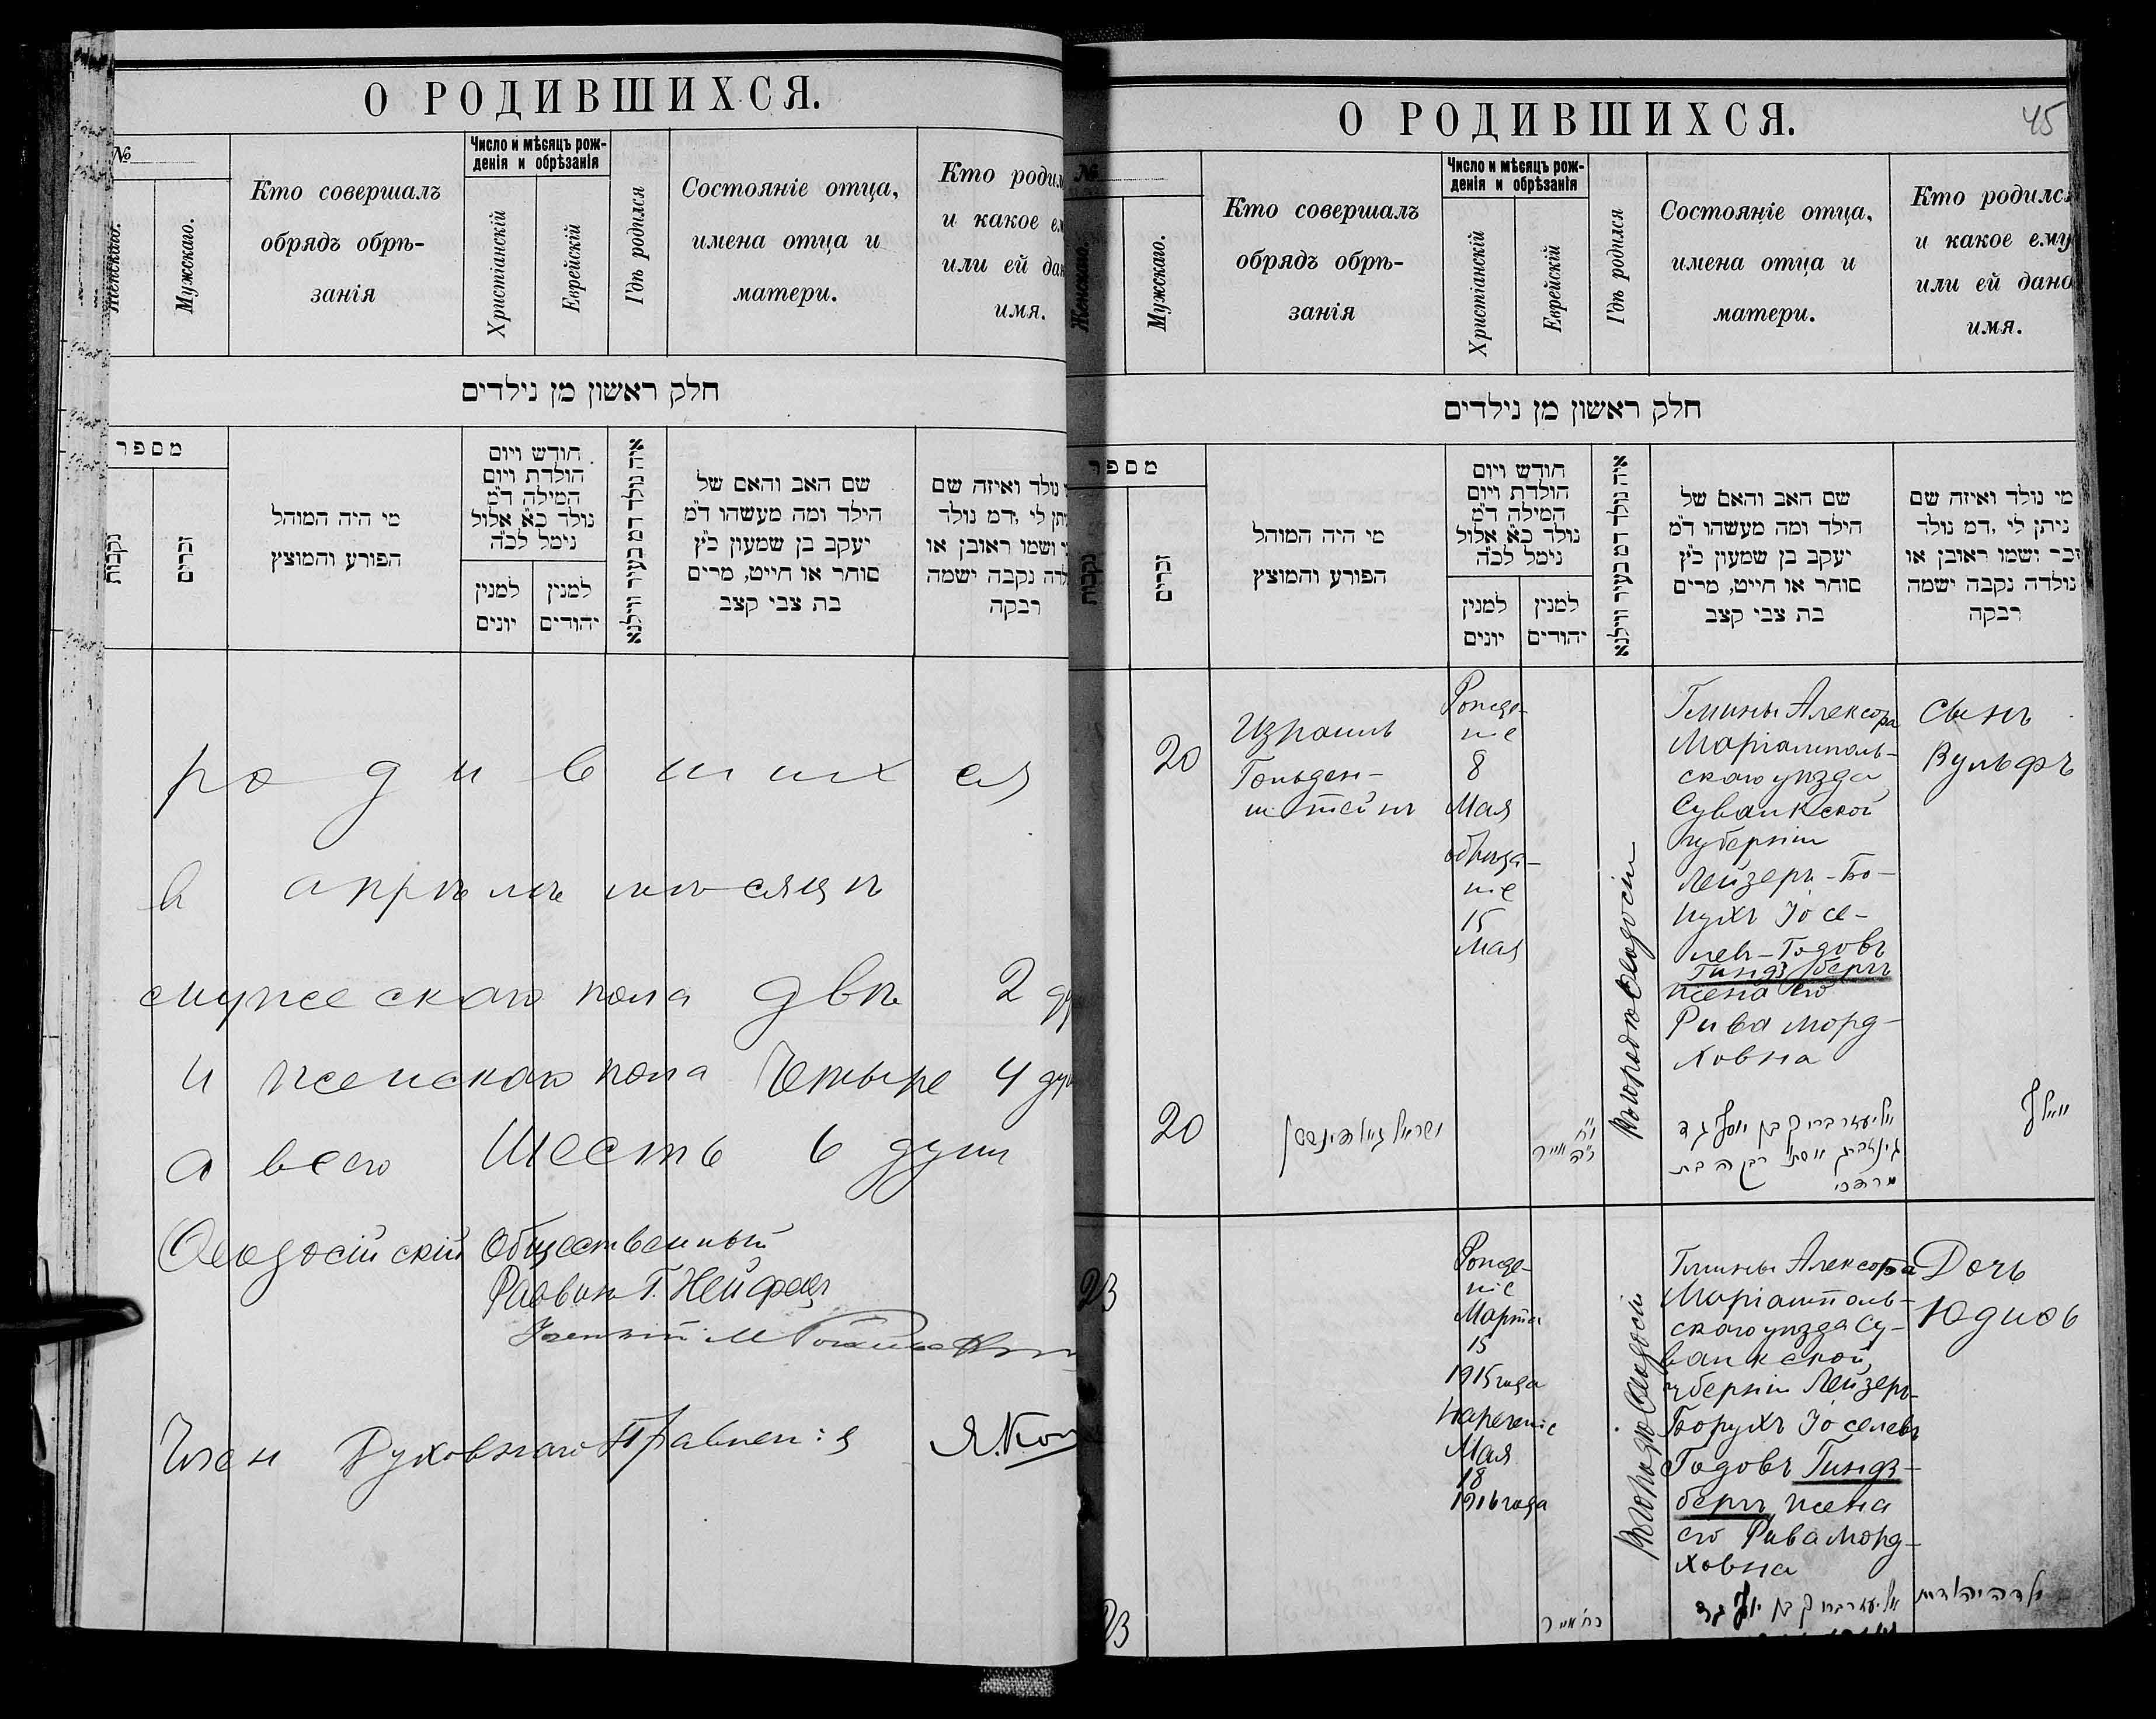 О РОДИВШИХСЯ.
№
Женскаго.
Мужскаго.
Кто совершалъ
обрядъ обрѣ-
занія
Число и мѣсяцъ рож-
денія и обрѣзанія
Христіанскій
Еврейскій
Гдѣ родился
Состояніе отца,
имена отца и
матери.
Кто
и какое
или ей
имя.
חלק ראשון מן נילדים
מספר
נקבות
זכרים
מי היה המוהל
הפורע והמוצץ
חודש ויום
הולדת ויום
המילה ד״מ
נולד כ״א אלול
נימל לכ״ה
למנין
יונים
למנין
יהודים
איה נולד דמ בעיר ווילנא
שם האב והאם של
הילד ומה מעשהו ד״מ
יעקב בן שמעון כ״ץ
סוחר או חייט, מרים
בת צבי קצב
נולד ואיזה שם
לי ,דמ נולד
ושמו ראובן או
נקבה ישמה
רבקה
родившихся
в апрѣлѣ мѣсяцѣ
мужескаго пола двѣ 2
и женскаго пола четыре 4
а всего шесть 6 душ
Ѳеодосійскій Общественный
Раввин Г. Нейфельд
Член Духовнаго Правленія
О РОДИВШИХСЯ.
45
№
Женскаго.
Мужскаго.
Кто совершалъ
обрядъ обрѣ-
занія
Число и мѣсяцъ рож-
денія и обрѣзанія
Христіанскій
Еврейскій
Гдѣ родился
Состояніе отца,
имена отца и
матери.
Кто родился
и какое ему
или ей дано
имя.
חלק ראשון מן נילדים
מספר
נקבות
זכרים
מי היה המוהל
הפורע והמוצץ
חודש ויום
הולדת ויום
המילה ד״מ
נולד כ״א אלול
נימל לכ״ה
למנין
יונים
למנין
יהודים
איה נולד דמ בעיר ווילנא
שם האב והאם של
הילד ומה מעשהו ד״מ
יעקב בן שמעון כ״ץ
סוחר או חייט, מרים
בת צבי קצב
מי נולד ואיזה שם
ניתן לי ,דמ נולד
זכר ושמו ראובן או
נולדה נקבה ישמה
רבקה
20
Израиль
Гольден-
штейнъ
Рожде-
ніе
8
Мая
обрѣза-
ніе
15
Мая
Ѳеодосіи
Гмины
Маріамполь-
скаго уѣзда
Сувалкской
губерніи
Лейзеръ-Бо-
рухъ Іосе-
левъ-Годовъ
Гиндзбергъ
жена его
Рива Морд-
ховна
Сынъ
Вульфъ
20
אליעזר ברוך בן יוסף גד
גינזבורג ואשתו רבקה בת
מרדכי
וואלף
23
Рожде-
ніе
Марта
15
1915 года
Нареченіе
Мая
18
1916 года
Ѳеодосіи
Гмины
Маріамполь-
скаго уѣзда Су-
валкской
губерніи Лейзеръ-
Борухъ Іоселевъ
Годовъ Гиндз-
бергъ жена
его Рива Морд-
ховна
Дочь
Юдиѳь
23
אליעזר ברוך בן יוסף גד